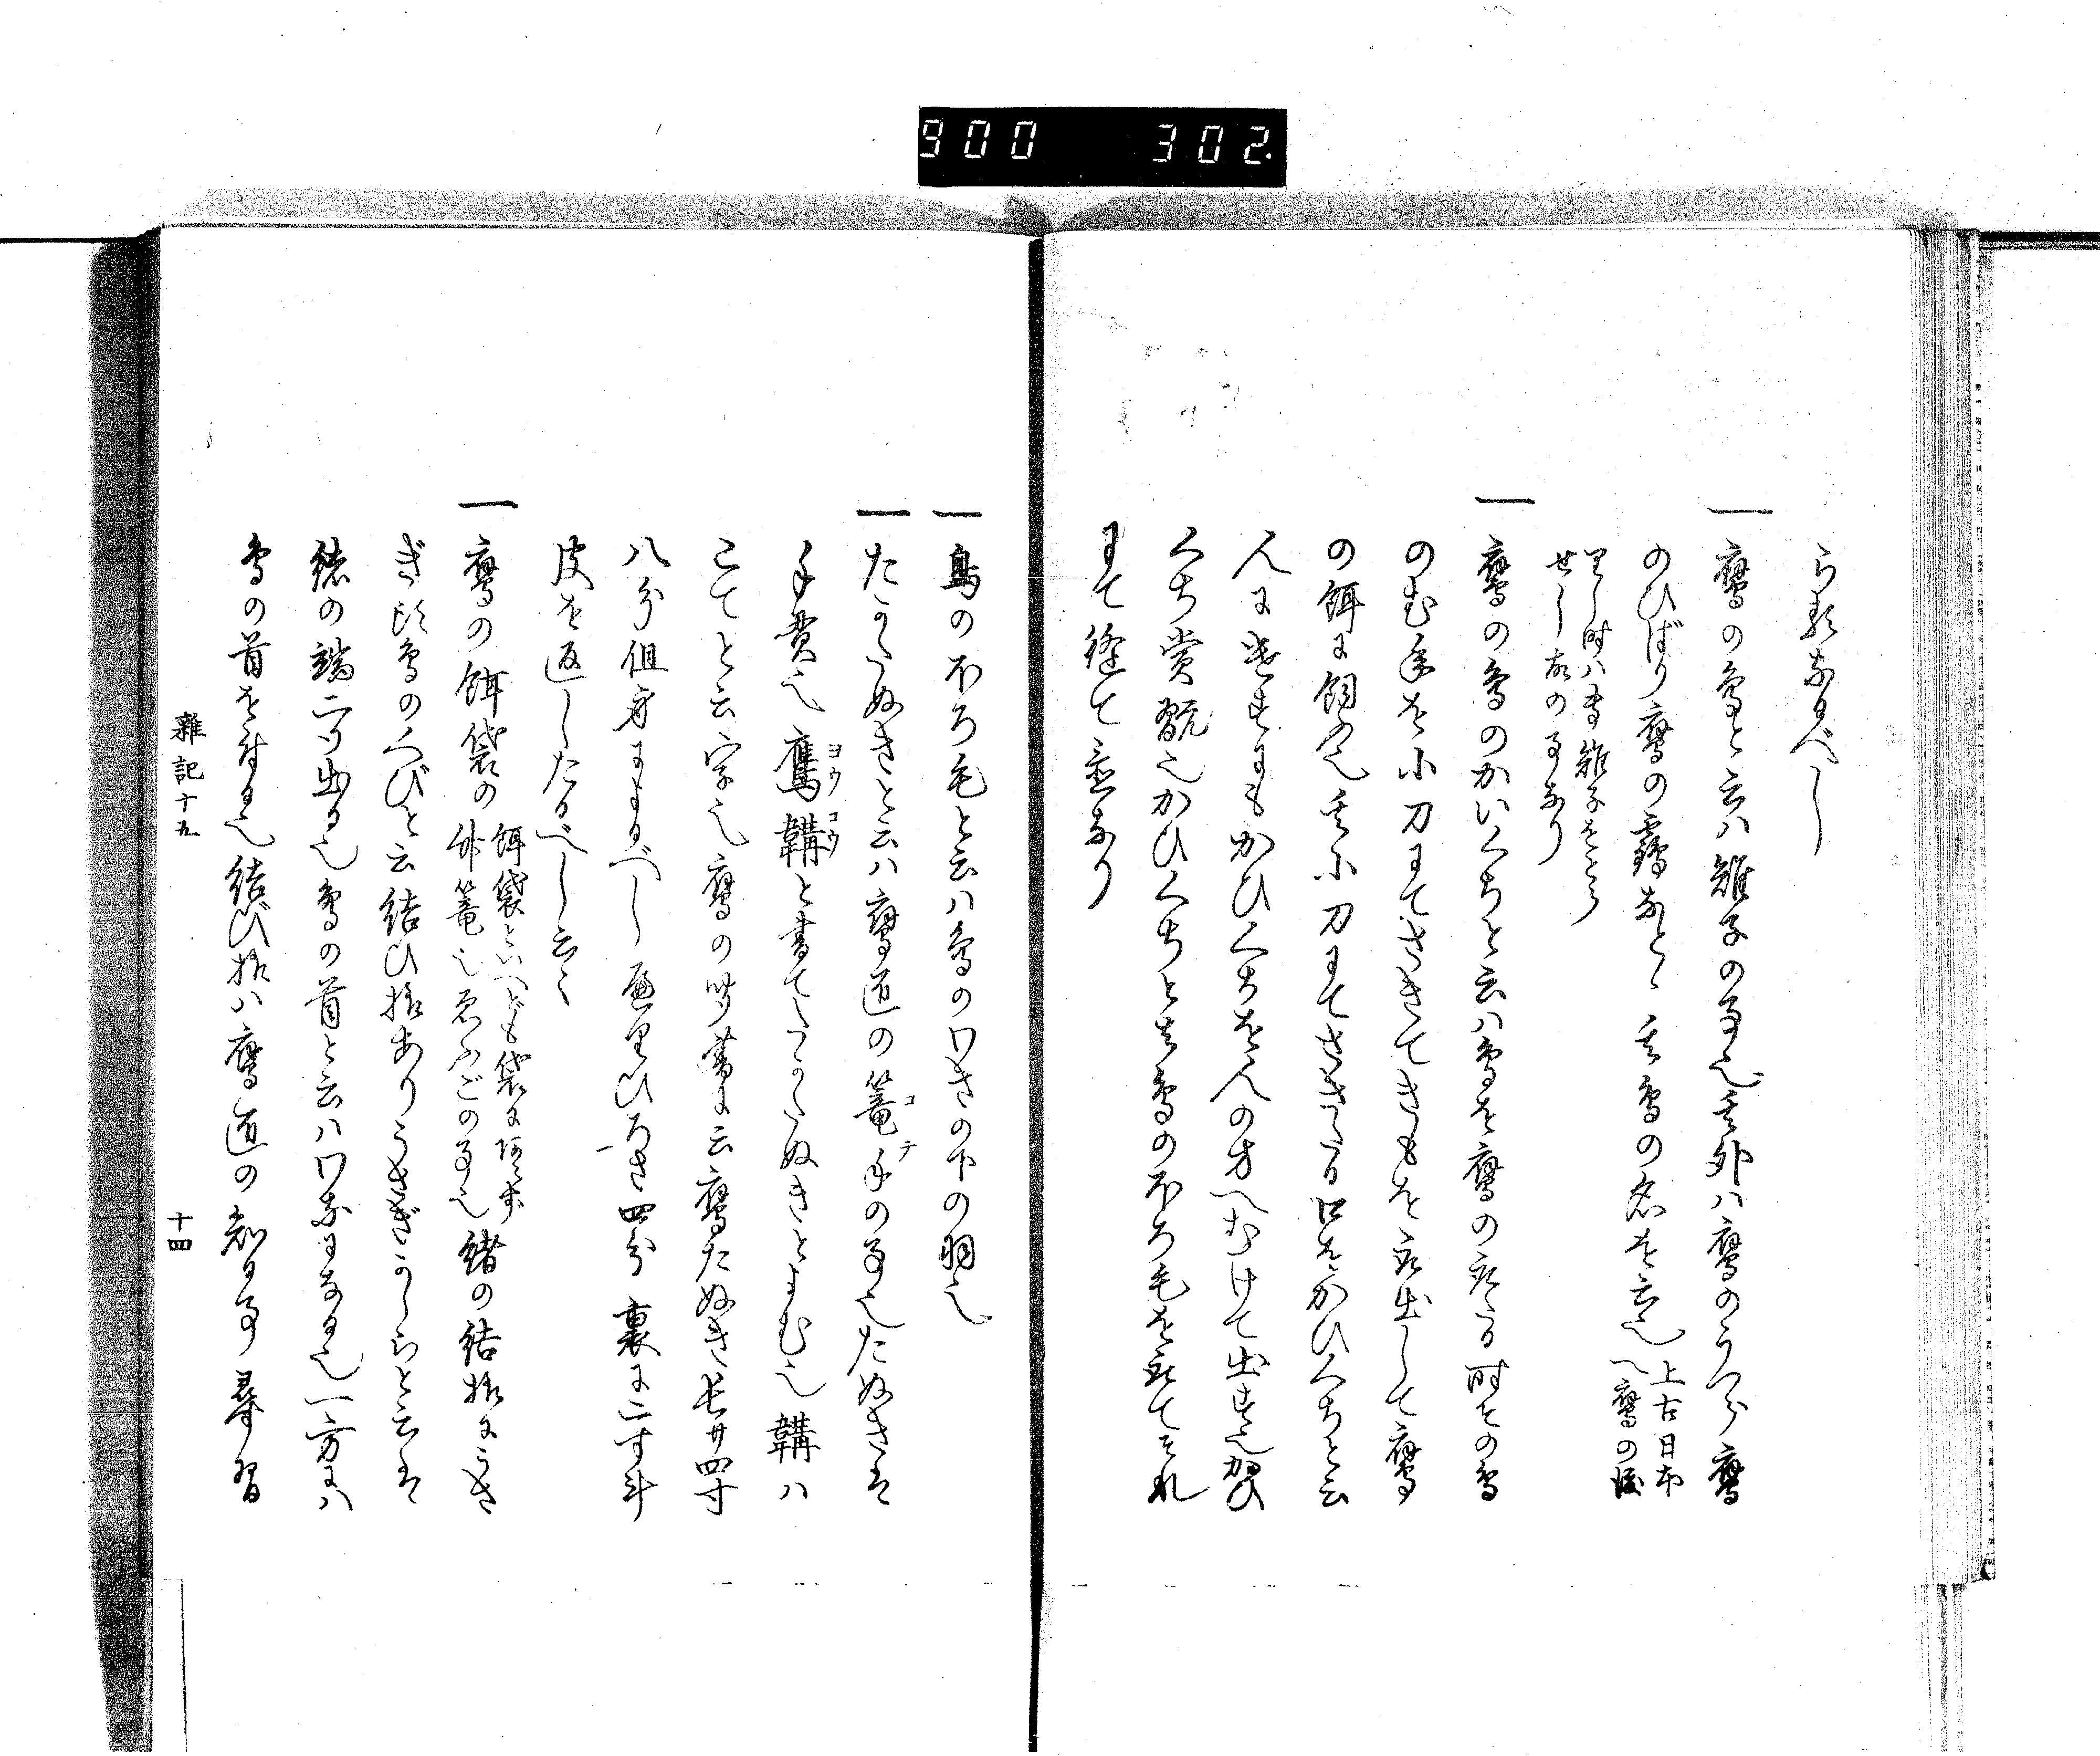 900 302.
らるゝなるべし
一 鷹の鳥と云ハ雉子の事也其外ハ鷹のうつら鷹
のひばり鷹の鷺などゝ其鳥の名を云也
上古日本
へ鷹の渡
りし時ハ専雉子をとら
せし故の事なり
一 鷹の鳥のかいくちと云ハ鳥を鷹の取たる時その鳥
のむねを小刀にてさきてきもを取出して鷹
の餌に飼也其小刀にてさきたる口をかひくちと云
人に遣すにもかひくちを人の方へむけて出す也かひ
くち賞翫也かひくちと其鳥のほろ毛を取てそれ
にて縫て置なり
一 鳥のホろ毛と云ハ鳥のワきの下の羽也
一 たかたぬきと云ハ鷹道の篭手の事也たぬきは
コテ
手貫也鷹韝と書てたかたぬきとよむ也韝ハ
ヨウコウ
こてと云字也鷹の聞書に云鷹たぬき長廿四寸
八分但身によるべし面里ひろさ四分裏に二寸斗
皮を返したるべし云々
一 鷹の餌袋の
餌袋といへども袋にあらず
竹篭也ゑふごの事也
緒の結招にうさ
ぎ頭鳥のくびと云結ひ招ありうさぎかしらと云は
緒の端二ツ出る也鳥の首と云ハワなになる也一方にハ
鳥の首を付る也結び招ハ鷹道の知る事尋習
雜記十九
十四